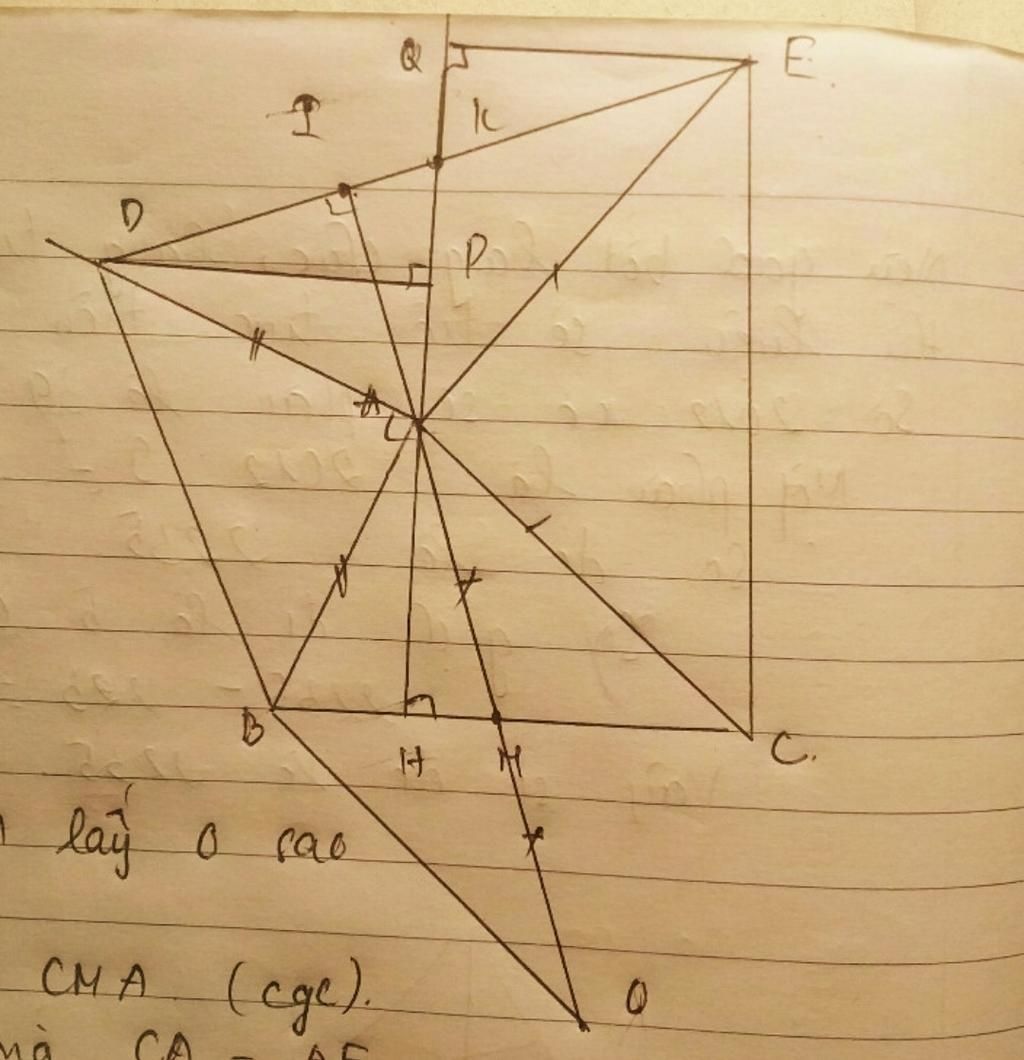 Q
E.
I
K
D
P
A
B
H
M
C.
lấy O sao
O
CMA (cgc).
mà CA = AE